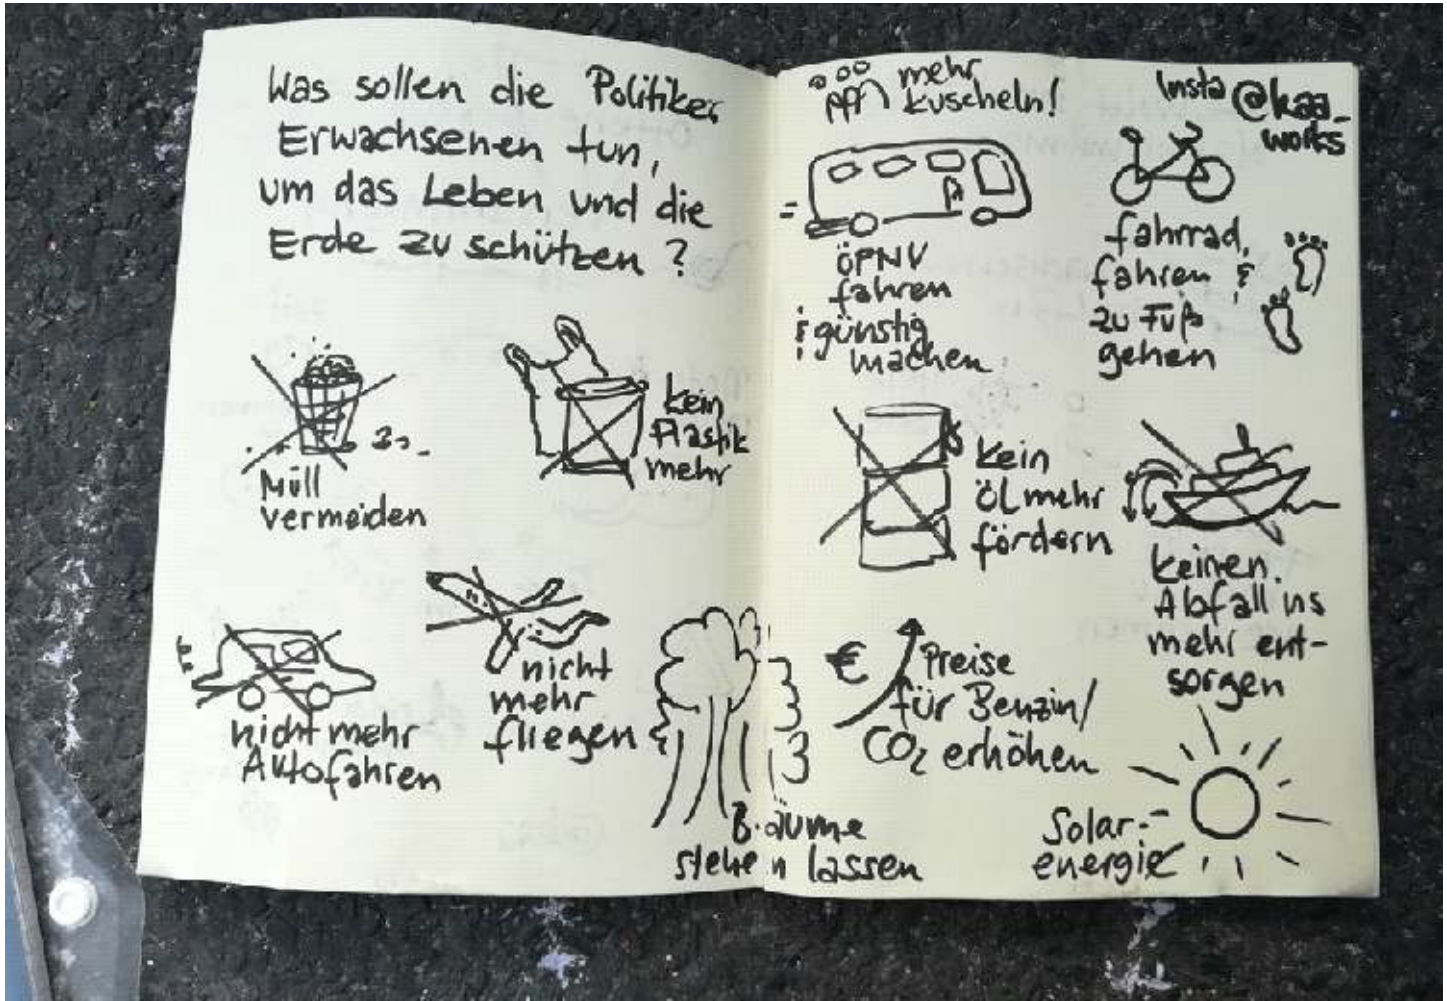 Was sollen die Politiker
Erwachsenen tun,
um das Leben und die
Erde zu schützen?
Müll
vermeiden
kein
Plastik
mehr
nicht mehr
Autofahren
nicht
mehr
fliegen
Bäume
stehen lassen
mehr
kuscheln!
Insta @kaa_
works
ÖPNV
fahren
& günstig
machen
fahrrad
fahren &
zu Fuß
gehen
kein
Öl mehr
fördern
keinen
Abfall ins
mehr ent-
sorgen
€
Preise
für Benzin/
CO₂ erhöhen
Solar-
energie